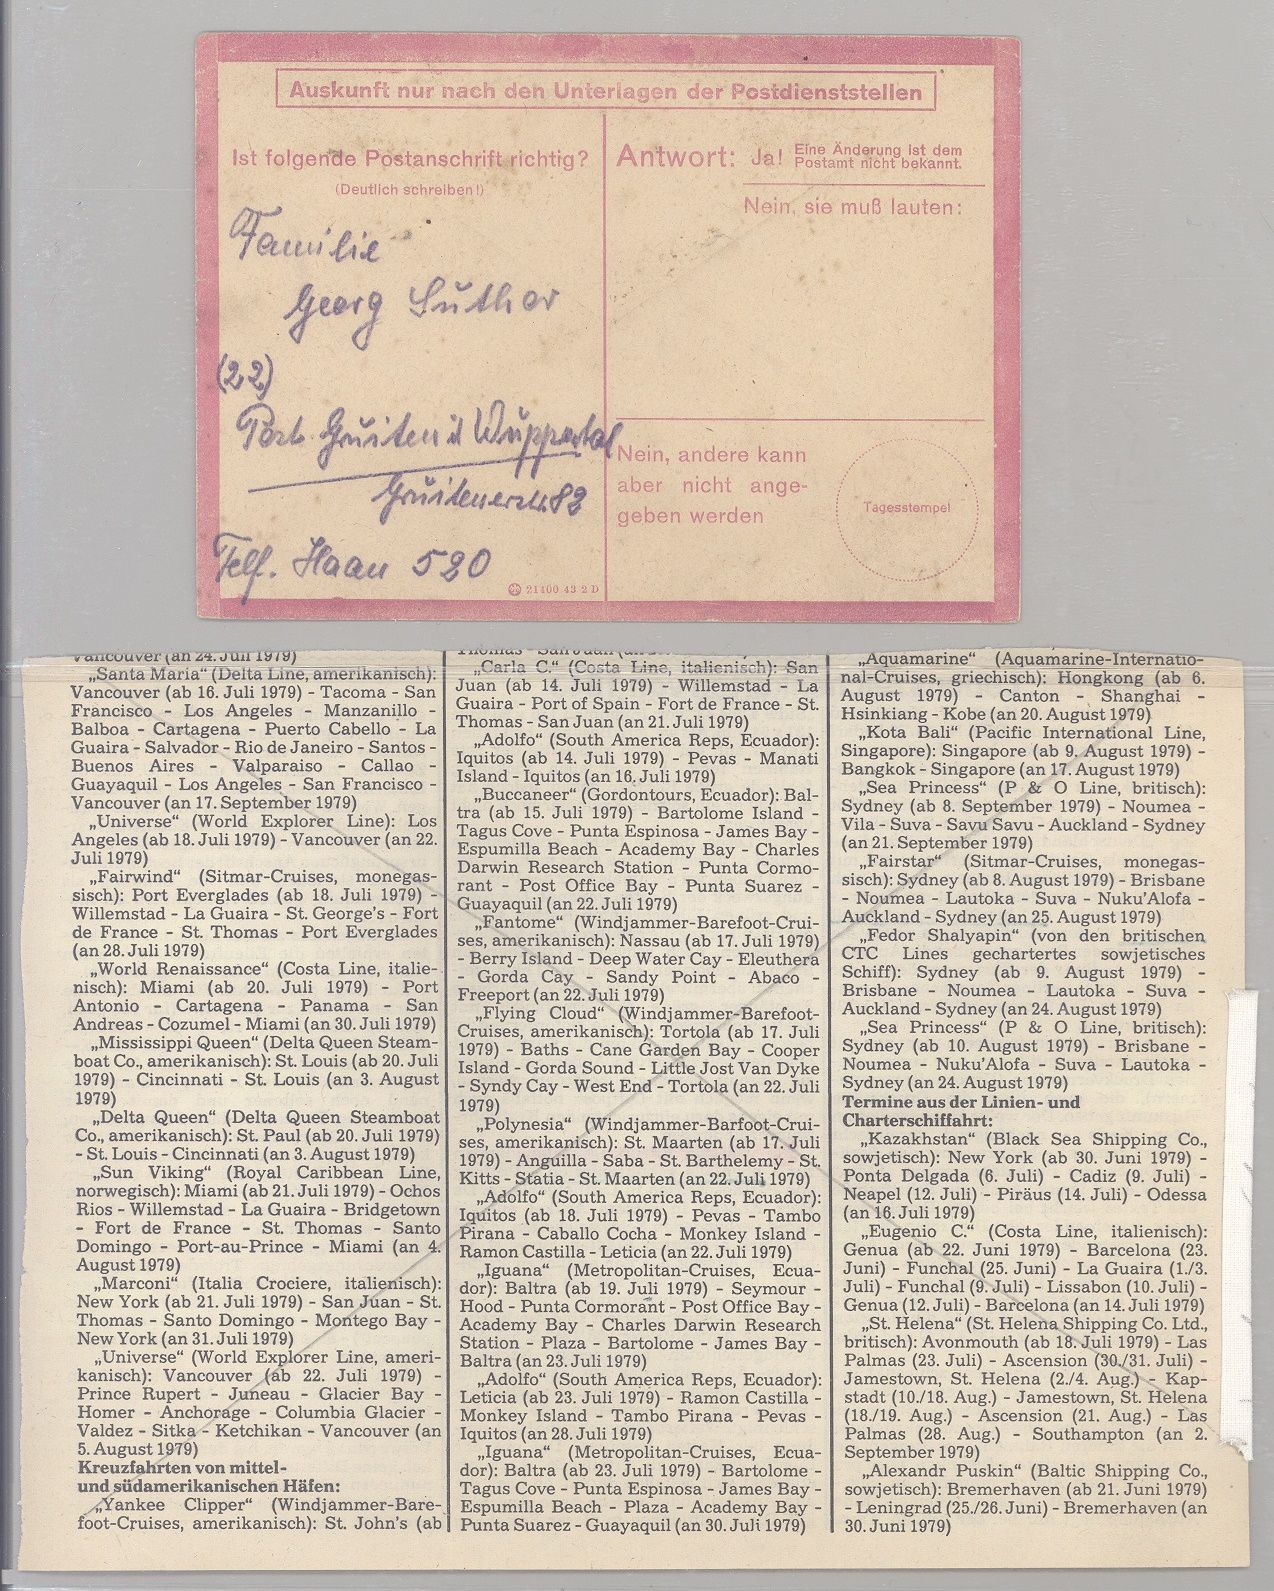 Auskunft nur nach den Unterlagen der Postdienststellen
Ist folgende Postanschrift richtig?
(Deutlich schreiben!)
Familie
Georg Luthor
(22)
Post Gruiten Wuppertal
Gruitenerstr. 82
Telf. Haan 520
21400 43 2 D
Antwort: Ja! Eine Änderung ist dem
Postamt nicht bekannt.
Nein, sie muß lauten:
Nein, andere kann
aber nicht ange-
geben werden
Tagesstempel
Vancouver (an 24. Juli 1979)
„Santa Maria“ (Delta Line, amerikanisch):
Vancouver (ab 16. Juli 1979) - Tacoma - San
Francisco - Los Angeles - Manzanillo -
Balboa - Cartagena - Puerto Cabello - La
Guaira - Salvador - Rio de Janeiro - Santos -
Buenos Aires - Valparaiso - Callao -
Guayaquil - Los Angeles - San Francisco -
Vancouver (an 17. September 1979)
„Universe“ (World Explorer Line): Los
Angeles (ab 18. Juli 1979) - Vancouver (an 22.
Juli 1979)
„Fairwind“ (Sitmar-Cruises, monegas-
sisch): Port Everglades (ab 18. Juli 1979) -
Willemstad - La Guaira - St. George's - Fort
de France - St. Thomas - Port Everglades
(an 28. Juli 1979)
„World Renaissance“ (Costa Line, italie-
nisch): Miami (ab 20. Juli 1979) - Port
Antonio - Cartagena - Panama - San
Andreas - Cozumel - Miami (an 30. Juli 1979)
„Mississippi Queen“ (Delta Queen Steam-
boat Co., amerikanisch): St. Louis (ab 20. Juli
1979) - Cincinnati - St. Louis (an 3. August
1979)
„Delta Queen“ (Delta Queen Steamboat
Co., amerikanisch): St. Paul (ab 20. Juli 1979)
- St. Louis - Cincinnati (an 3. August 1979)
„Sun Viking“ (Royal Caribbean Line,
norwegisch): Miami (ab 21. Juli 1979) - Ochos
Rios - Willemstad - La Guaira - Bridgetown
- Fort de France - St. Thomas - Santo
Domingo - Port-au-Prince - Miami (an 4.
August 1979)
„Marconi“ (Italia Crociere, italienisch):
New York (ab 21. Juli 1979) - San Juan - St.
Thomas - Santo Domingo - Montego Bay -
New York (an 31. Juli 1979)
„Universe“ (World Explorer Line, ameri-
kanisch): Vancouver (ab 22. Juli 1979) -
Prince Rupert - Juneau - Glacier Bay -
Homer - Anchorage - Columbia Glacier -
Valdez - Sitka - Ketchikan - Vancouver (an
5. August 1979)
Kreuzfahrten von mittel-
und südamerikanischen Häfen:
„Yankee Clipper“ (Windjammer-Bare-
foot-Cruises, amerikanisch): St. John's (ab
„Carla C.“ (Costa Line, italienisch): San
Juan (ab 14. Juli 1979) - Willemstad - La
Guaira - Port of Spain - Fort de France - St.
Thomas - San Juan (an 21. Juli 1979)
„Adolfo“ (South America Reps, Ecuador):
Iquitos (ab 14. Juli 1979) - Pevas - Manati
Island - Iquitos (an 16. Juli 1979)
„Buccaneer“ (Gordontours, Ecuador): Bal-
tra (ab 15. Juli 1979) - Bartolome Island -
Tagus Cove - Punta Espinosa - James Bay -
Espumilla Beach - Academy Bay - Charles
Darwin Research Station - Punta Cormo-
rant - Post Office Bay - Punta Suarez -
Guayaquil (an 22. Juli 1979)
„Fantome“ (Windjammer-Barefoot-Crui-
ses, amerikanisch): Nassau (ab 17. Juli 1979)
- Berry Island - Deep Water Cay - Eleuthera
- Gorda Cay - Sandy Point - Abaco -
Freeport (an 22. Juli 1979)
„Flying Cloud“ (Windjammer-Barefoot-
Cruises, amerikanisch): Tortola (ab 17. Juli
1979) - Baths - Cane Garden Bay - Cooper
Island - Gorda Sound - Little Jost Van Dyke
- Syndy Cay - West End - Tortola (an 22. Juli
1979)
„Polynesia“ (Windjammer-Barfoot-Crui-
ses, amerikanisch): St. Maarten (ab 17. Juli
1979) - Anguilla - Saba - St. Barthelemy - St.
Kitts - Statia - St. Maarten (an 22. Juli 1979)
„Adolfo“ (South America Reps, Ecuador):
Iquitos (ab 18. Juli 1979) - Pevas - Tambo
Pirana - Caballo Cocha - Monkey Island -
Ramon Castilla - Leticia (an 22. Juli 1979)
„Iguana“ (Metropolitan-Cruises, Ecua-
dor): Baltra (ab 19. Juli 1979) - Seymour -
Hood - Punta Cormorant - Post Office Bay -
Academy Bay - Charles Darwin Research
Station - Plaza - Bartolome - James Bay -
Baltra (an 23. Juli 1979)
„Adolfo“ (South America Reps, Ecuador):
Leticia (ab 23. Juli 1979) - Ramon Castilla -
Monkey Island - Tambo Pirana - Pevas -
Iquitos (an 28. Juli 1979)
„Iguana“ (Metropolitan-Cruises, Ecua-
dor): Baltra (ab 23. Juli 1979) - Bartolome -
Tagus Cove - Punta Espinosa - James Bay -
Espumilla Beach - Plaza - Academy Bay -
Punta Suarez - Guayaquil (an 30. Juli 1979)
„Aquamarine“ (Aquamarine-Internatio-
nal-Cruises, griechisch): Hongkong (ab 6.
August 1979) - Canton - Shanghai -
Hsinkiang - Kobe (an 20. August 1979)
„Kota Bali“ (Pacific International Line,
Singapore): Singapore (ab 9. August 1979) -
Bangkok - Singapore (an 17. August 1979)
„Sea Princess“ (P & O Line, britisch):
Sydney (ab 8. September 1979) - Noumea -
Vila - Suva - Savu Savu - Auckland - Sydney
(an 21. September 1979)
„Fairstar“ (Sitmar-Cruises, monegas-
sisch): Sydney (ab 8. August 1979) - Brisbane
- Noumea - Lautoka - Suva - Nuku'Alofa -
Auckland - Sydney (an 25. August 1979)
„Fedor Shalyapin“ (von den britischen
CTC Lines gechartertes sowjetisches
Schiff): Sydney (ab 9. August 1979) -
Brisbane - Noumea - Lautoka - Suva -
Auckland - Sydney (an 24. August 1979)
„Sea Princess“ (P & O Line, britisch):
Sydney (ab 10. August 1979) - Brisbane -
Noumea - Nuku'Alofa - Suva - Lautoka -
Sydney (an 24. August 1979)
Termine aus der Linien- und
Charterschiffahrt:
„Kazakhstan“ (Black Sea Shipping Co.,
sowjetisch): New York (ab 30. Juni 1979) -
Ponta Delgada (6. Juli) - Cadiz (9. Juli) -
Neapel (12. Juli) - Piräus (14. Juli) - Odessa
(an 16. Juli 1979)
„Eugenio C.“ (Costa Line, italienisch):
Genua (ab 22. Juni 1979) - Barcelona (23.
Juni) - Funchal (25. Juni) - La Guaira (1./3.
Juli) - Funchal (9. Juli) - Lissabon (10. Juli) -
Genua (12. Juli) - Barcelona (an 14. Juli 1979)
„St. Helena“ (St. Helena Shipping Co. Ltd.,
britisch): Avonmouth (ab 18. Juli 1979) - Las
Palmas (23. Juli) - Ascension (30./31. Juli) -
Jamestown, St. Helena (2./4. Aug.) - Kap-
stadt (10./18. Aug.) - Jamestown, St. Helena
(18./19. Aug.) - Ascension (21. Aug.) - Las
Palmas (28. Aug.) - Southampton (an 2.
September 1979)
„Alexandr Puskin“ (Baltic Shipping Co.,
sowjetisch): Bremerhaven (ab 21. Juni 1979)
- Leningrad (25./26. Juni) - Bremerhaven (an
30. Juni 1979)